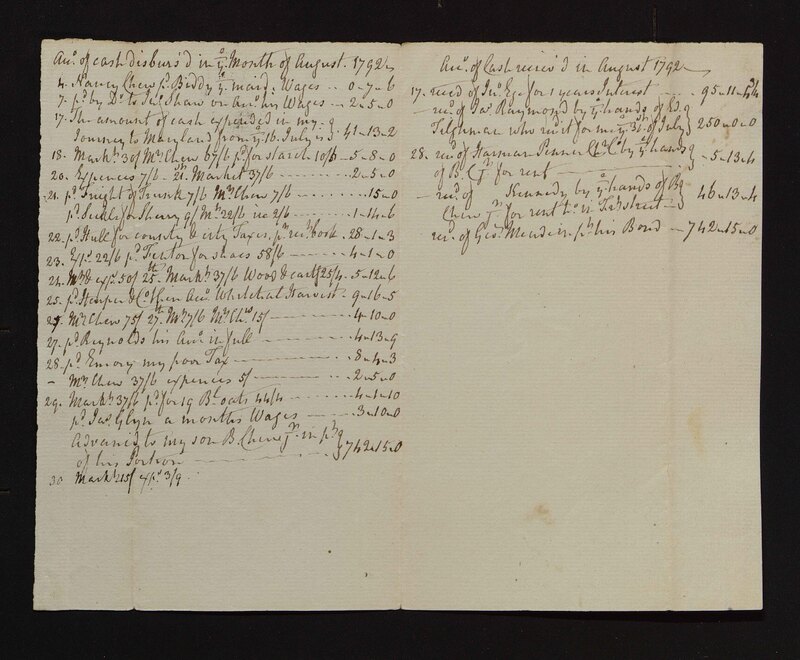 Acc.t of cash disburs'd in y.e Month of August. 1792
4. Nancy Chew p.d Biddy y.e maid. Wages .. 0-7-6
7. p.d by D.o to Jn.o Shaw on Acc.t his Wages -- 2-5-0
17. The amount of cash expended in my
Journey to Maryland from y.e 16. July is 41-13-2
18. Mark.t 30/ M.rs Chew 67/6 p.d for starch 10/6 -5-8-0
20. Expences 7/6 - 21. Market 37/6 -- 2-5-0
21. p.d Freight of Trunk 7/6 M.rs Chew 7/6 -- 15-0
for Sherry 22/6 2/6 -- 1-14-6
22. p.d Hull for county & city Taxes. p.r rec.t book. 28-1-3
23. Exp.s 22/6 p.d Fenton for shoes 58/6 -- 4-1-0
24. exp.s 50/ 25.th Mark.t 37/6 Wood & cart.g 25/4. 5-12-6
25. p.d Harper & Co. their Acc.t Whitehal Harvest - 9-16-5
27. M.rs Chew 75/ 27.th 7/6 M.rs Chew 15/ -- 4-10-0
27. p.d Reynolds his Acc.t in full -- 4-13-9
28. p.d Emory my poor Tax -- 8-4-3
- M.rs Chew 37/6 expences 5/ -- 2-5-0
29. Mark.t 37/6 p.d for 19 B.ls oats 44/4 -- 4-1-10
p.d Ja.s Glyn a months Wages -- 3-10-0
Advanc'd to my son B Chew j.r in p.t
of his Portion -- 742-15-0
30 Mark.t 15/ exp.s 3/9.
Acc.t of Cash receiv'd in August 1792
17. receiv'd of Jn.o for 1 years Interest -- 95-11-
- rec.d of Ja.s Raymond by y.e hands of Ed.
Tilghman who rec'd it for me y.e 31.st of July 250-0-0
28. rec.d of Harman by y.e hands
of B. C j.r for rent -- 5-13-4
- rec.d of Kennedy by y.e hands of B
Chew j.r for rent in street 46-13-4
rec.d of Geo. Meade in p.t his Bond -- 742-15-0